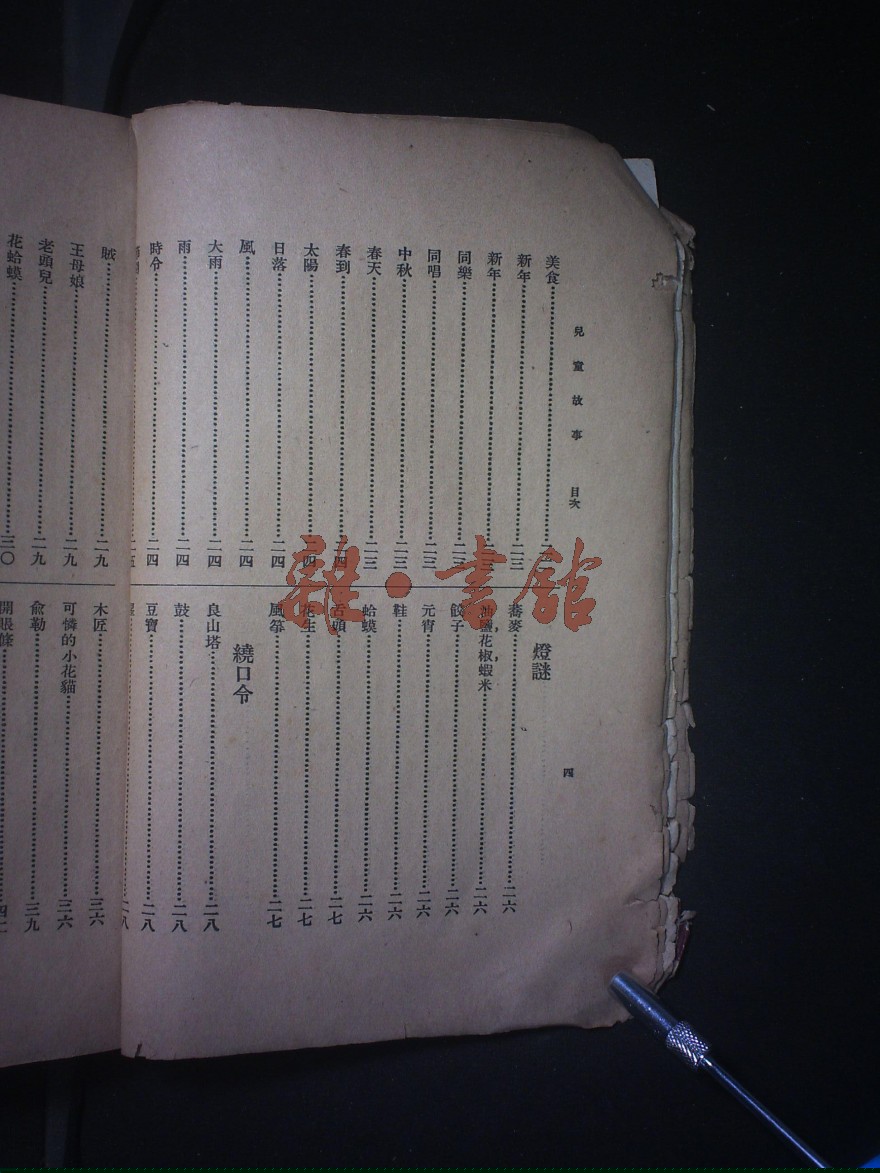 兒童故事 目次
四
美食 二三
新年 二三
新年 二三
同樂 二三
同唱 二三
中秋 二三
春天 二三
春到 二四
太陽 二四
日落 二四
風 二四
大雨 二四
雨 二四
時令 二四
二五
燈謎
蕎麥 二六
油，鹽，花椒，蝦米 二六
餃子 二六
元宵 二六
鞋 二六
蛤蟆 二六
舌頭 二七
花生 二七
風箏 二七
繞口令
良山塔 二八
鼓 二八
豆寶 二八
二八
賊 二九
王母娘 二九
老頭兒 二九
花蛤蟆 三〇
木匠 三六
可憐的小花貓 三六
兪勤 三九
開賬條
雜·書館